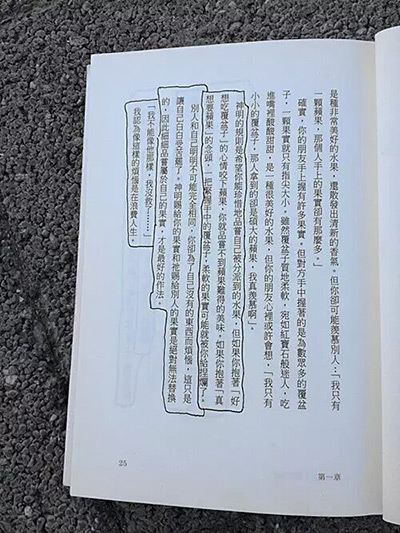 是種非常美好的水果,還散發出清新的香氣。但你卻可能羨慕別人:「我只有
一顆蘋果,那個人手上的果實卻有那麼多。」
確實,你的朋友手上握有許多果實,但對方手中握著的是為數眾多的覆盆
子,一顆果實就只有指尖大小,雖然覆盆子質地柔軟,宛如紅寶石般迷人,吃
進嘴裡酸酸甜甜,是一種很美好的水果,但你的朋友心裡或許會想,「我只有
小小的覆盆子,那人拿到的卻是碩大的蘋果,我真羨慕啊。」
神明的規則是希望你能珍惜地品嘗自己被分派到的水果,但如果你抱著「好
想吃覆盆子」的心情咬下蘋果,你就品嘗不到蘋果難得的美味。如果你抱著「真
想要蘋果」的念頭,一把緊握手中的覆盆子,柔軟的果實可能就被你給捏爛了。
別人和自己明明不可能完全相同,你卻為了自己沒有的東西而煩惱,這只是
讓自己白白受苦罷了。神明賜給你的果實和祂賜給別人的果實是絕對無法替換
的,因此細品嘗屬於自己的果實,才是最好的作法。
「我不能像他那樣,我沒救……」
我認為像這樣的煩惱是在浪費人生。
25
第一章